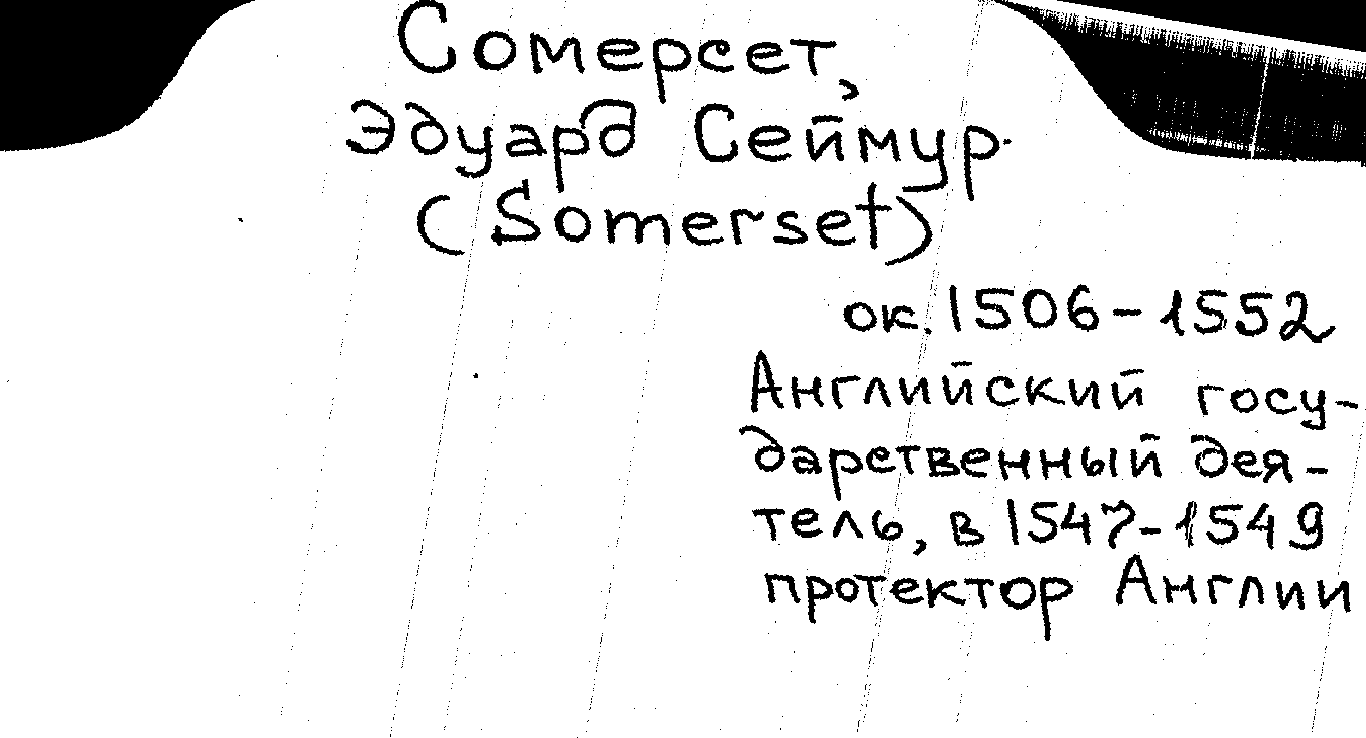 Сомерсет,
Эдуард Сеймур
(Somerset)
ок. 1506-1552
Английский госу-
дарственный дея-
тель, в 1547-1549
протектор Англии